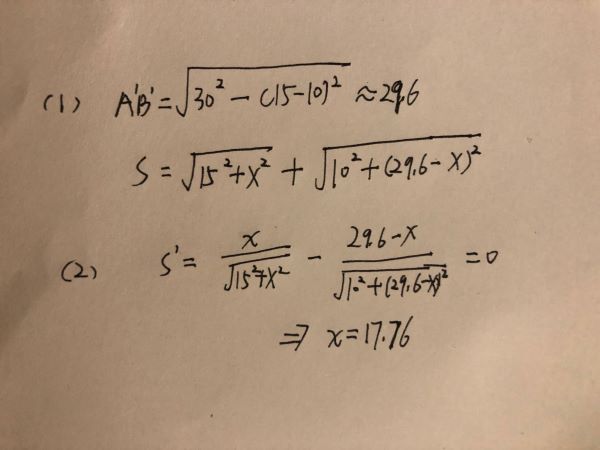 (1) A'B' = √(30² - (15-10)²) ≈ 29.6
S = √(15²+x²) + √(10²+(29.6-x)²)
(2) S' = x/√(15²+x²) - (29.6-x)/√(10²+(29.6-x)²) = 0
⇒ x = 17.76